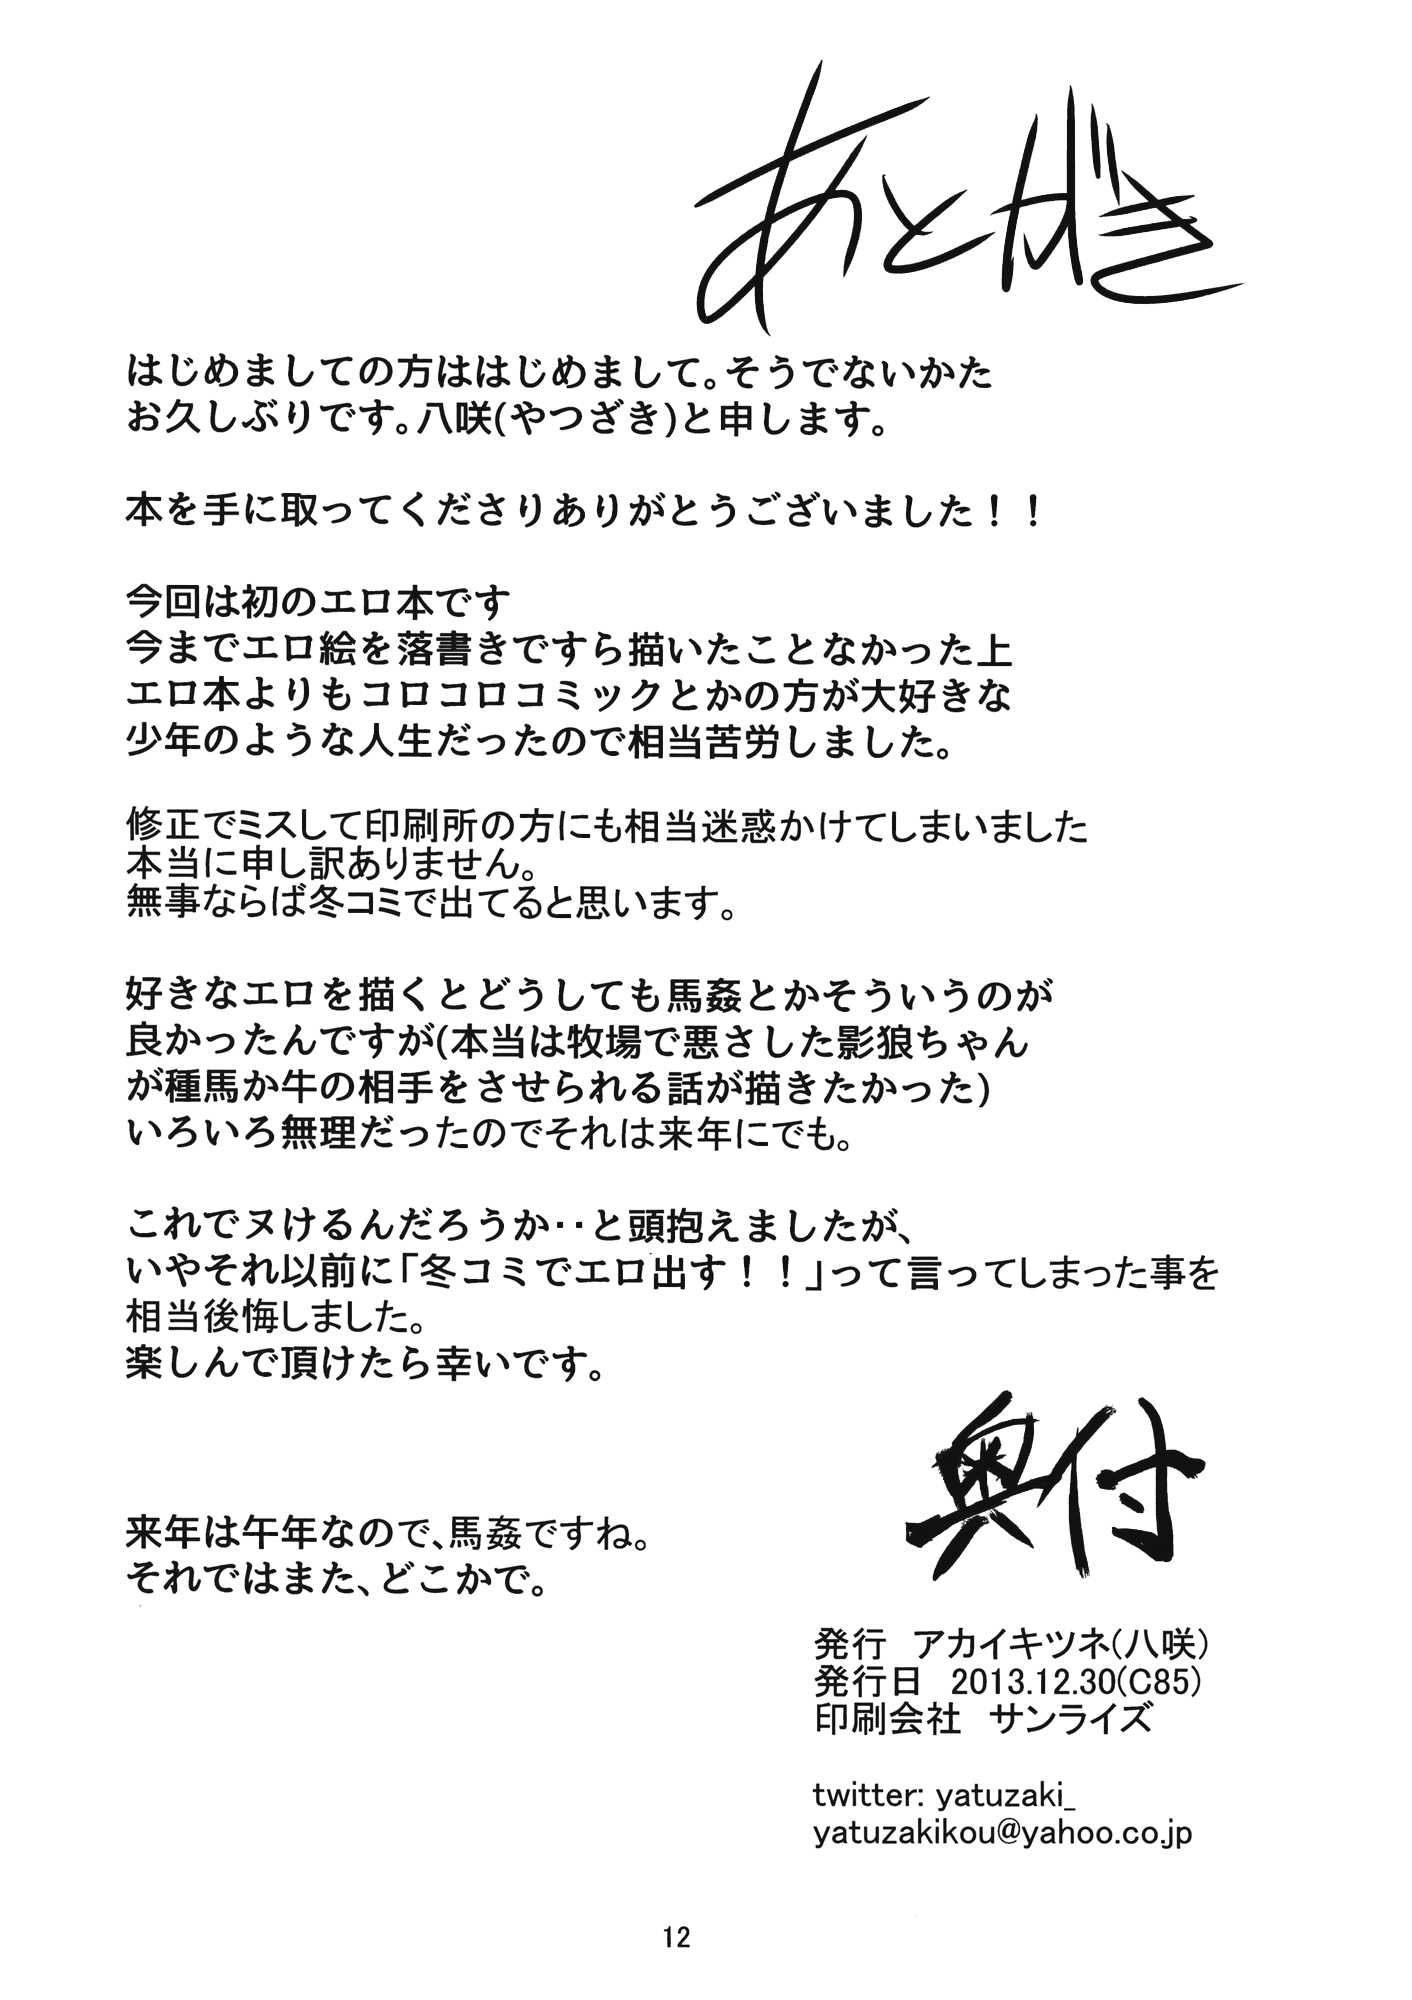 あとがき
はじめましての方ははじめまして。そうでないかた
お久しぶりです。八咲(やつざき)と申します。
本を手に取ってくださりありがとうございました！！
今回は初のエロ本です
今までエロ絵を落書きですら描いたことなかった上
エロ本よりもコロコロコミックとかの方が大好きな
少年のような人生だったので相当苦労しました。
修正でミスして印刷所の方にも相当迷惑かけてしまいました
本当に申し訳ありません。
無事ならば冬コミで出てると思います。
好きなエロを描くとどうしても馬姦とかそういうのが
良かったんですが(本当は牧場で悪さした影狼ちゃん
が種馬か牛の相手をさせられる話が描きたかった)
いろいろ無理だったのでそれは来年にでも。
これでヌけるんだろうか‥と頭抱えましたが、
いやそれ以前に「冬コミでエロ出す！！」って言ってしまった事を
相当後悔しました。
楽しんで頂けたら幸いです。
来年は午年なので、馬姦ですね。
それではまた、どこかで。
奥付
発行　アカイキツネ(八咲)
発行日　2013.12.30(C85)
印刷会社　サンライズ
twitter: yatuzaki_
yatuzakikou@yahoo.co.jp
12